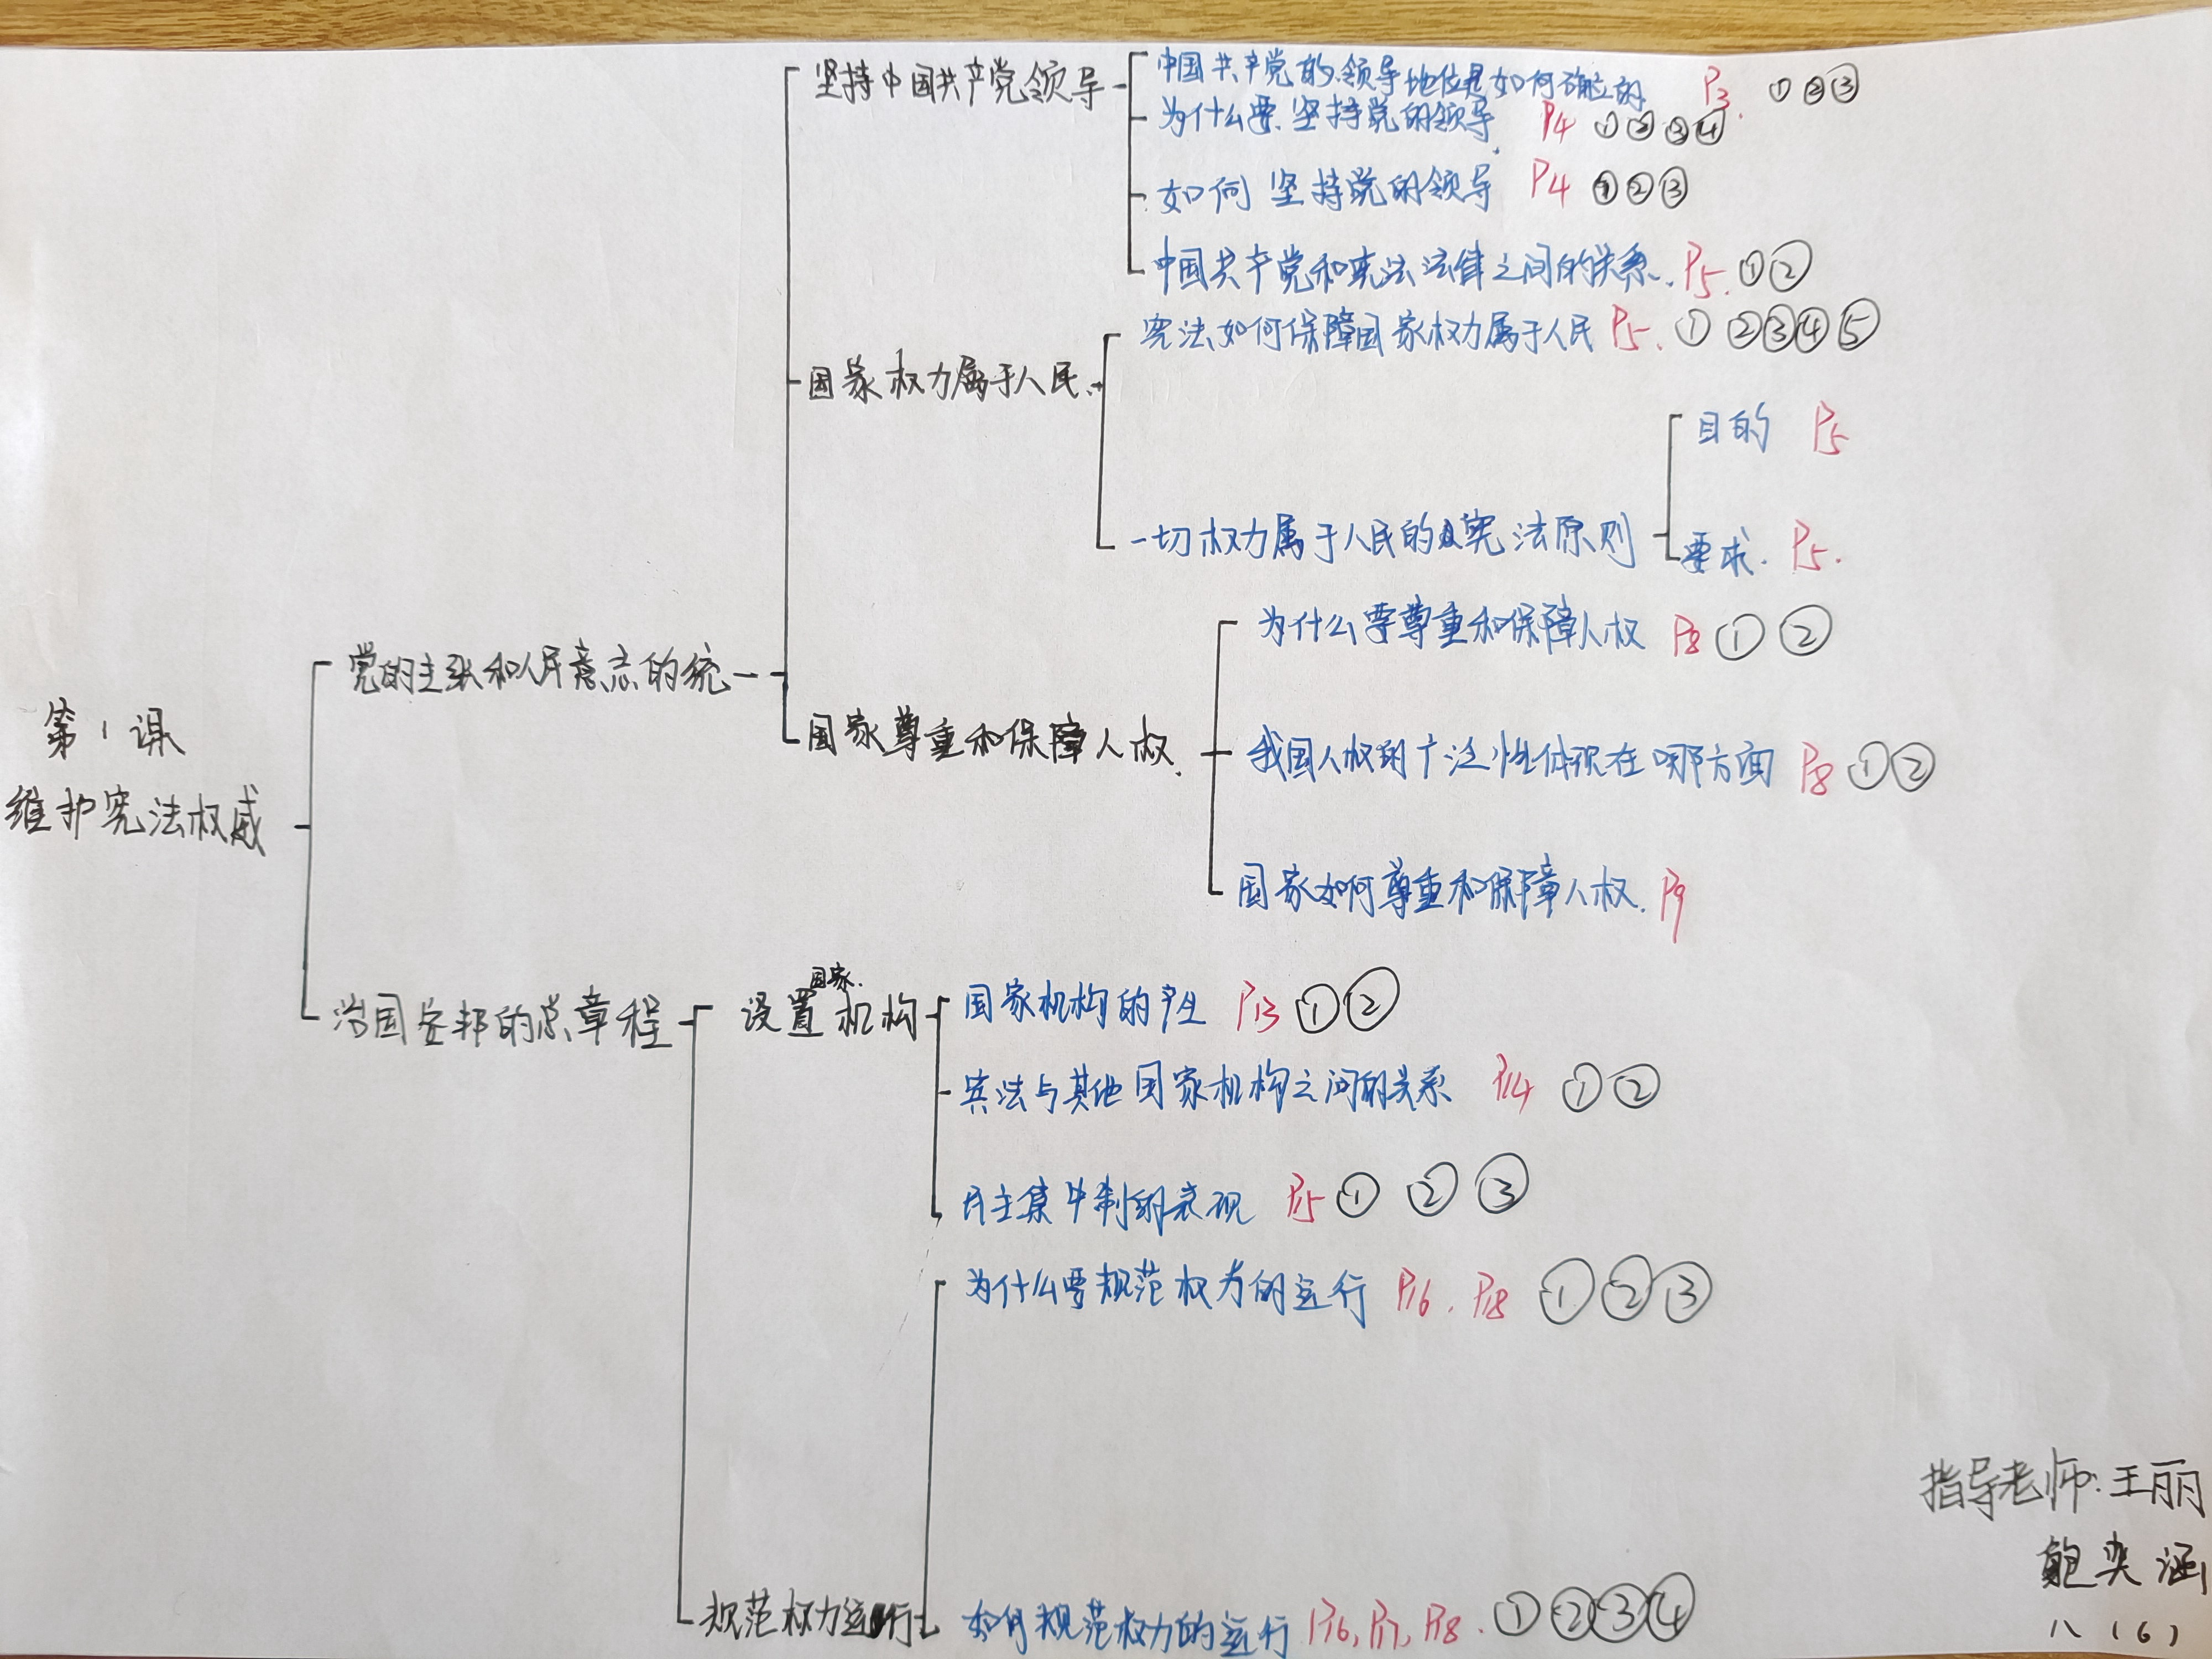 坚持中国共产党领导
中国共产党的领导地位是如何确立的 P3. ①②③
为什么要坚持党的领导 P4 ①②③④
如何坚持党的领导 P4 ①②③
中国共产党和宪法法律之间的关系. P5. ①②
国家权力属于人民.
宪法如何保障国家权力属于人民 P5. ①②③④⑤
一切权力属于人民的宪法原则
目的 P5
要求. P5.
党的主张和人民意志的统一
国家尊重和保障人权.
为什么要尊重和保障人权 P8 ①②
我国人权的广泛性体现在哪方面 P8 ①②
国家如何尊重和保障人权. P9
第1课
维护宪法权威
治国安邦的总章程
设置国家机构
国家机构的产生 P13 ①②
宪法与其他国家机构之间的关系 P14 ①②
民主集中制的表现 P15 ①②③
规范权力运行
为什么要规范权力的运行 P16. P18 ①②③
如何规范权力的运行 P16, P17, P18. ①②③④
指导老师:王丽
鲍奕涵
八(6)